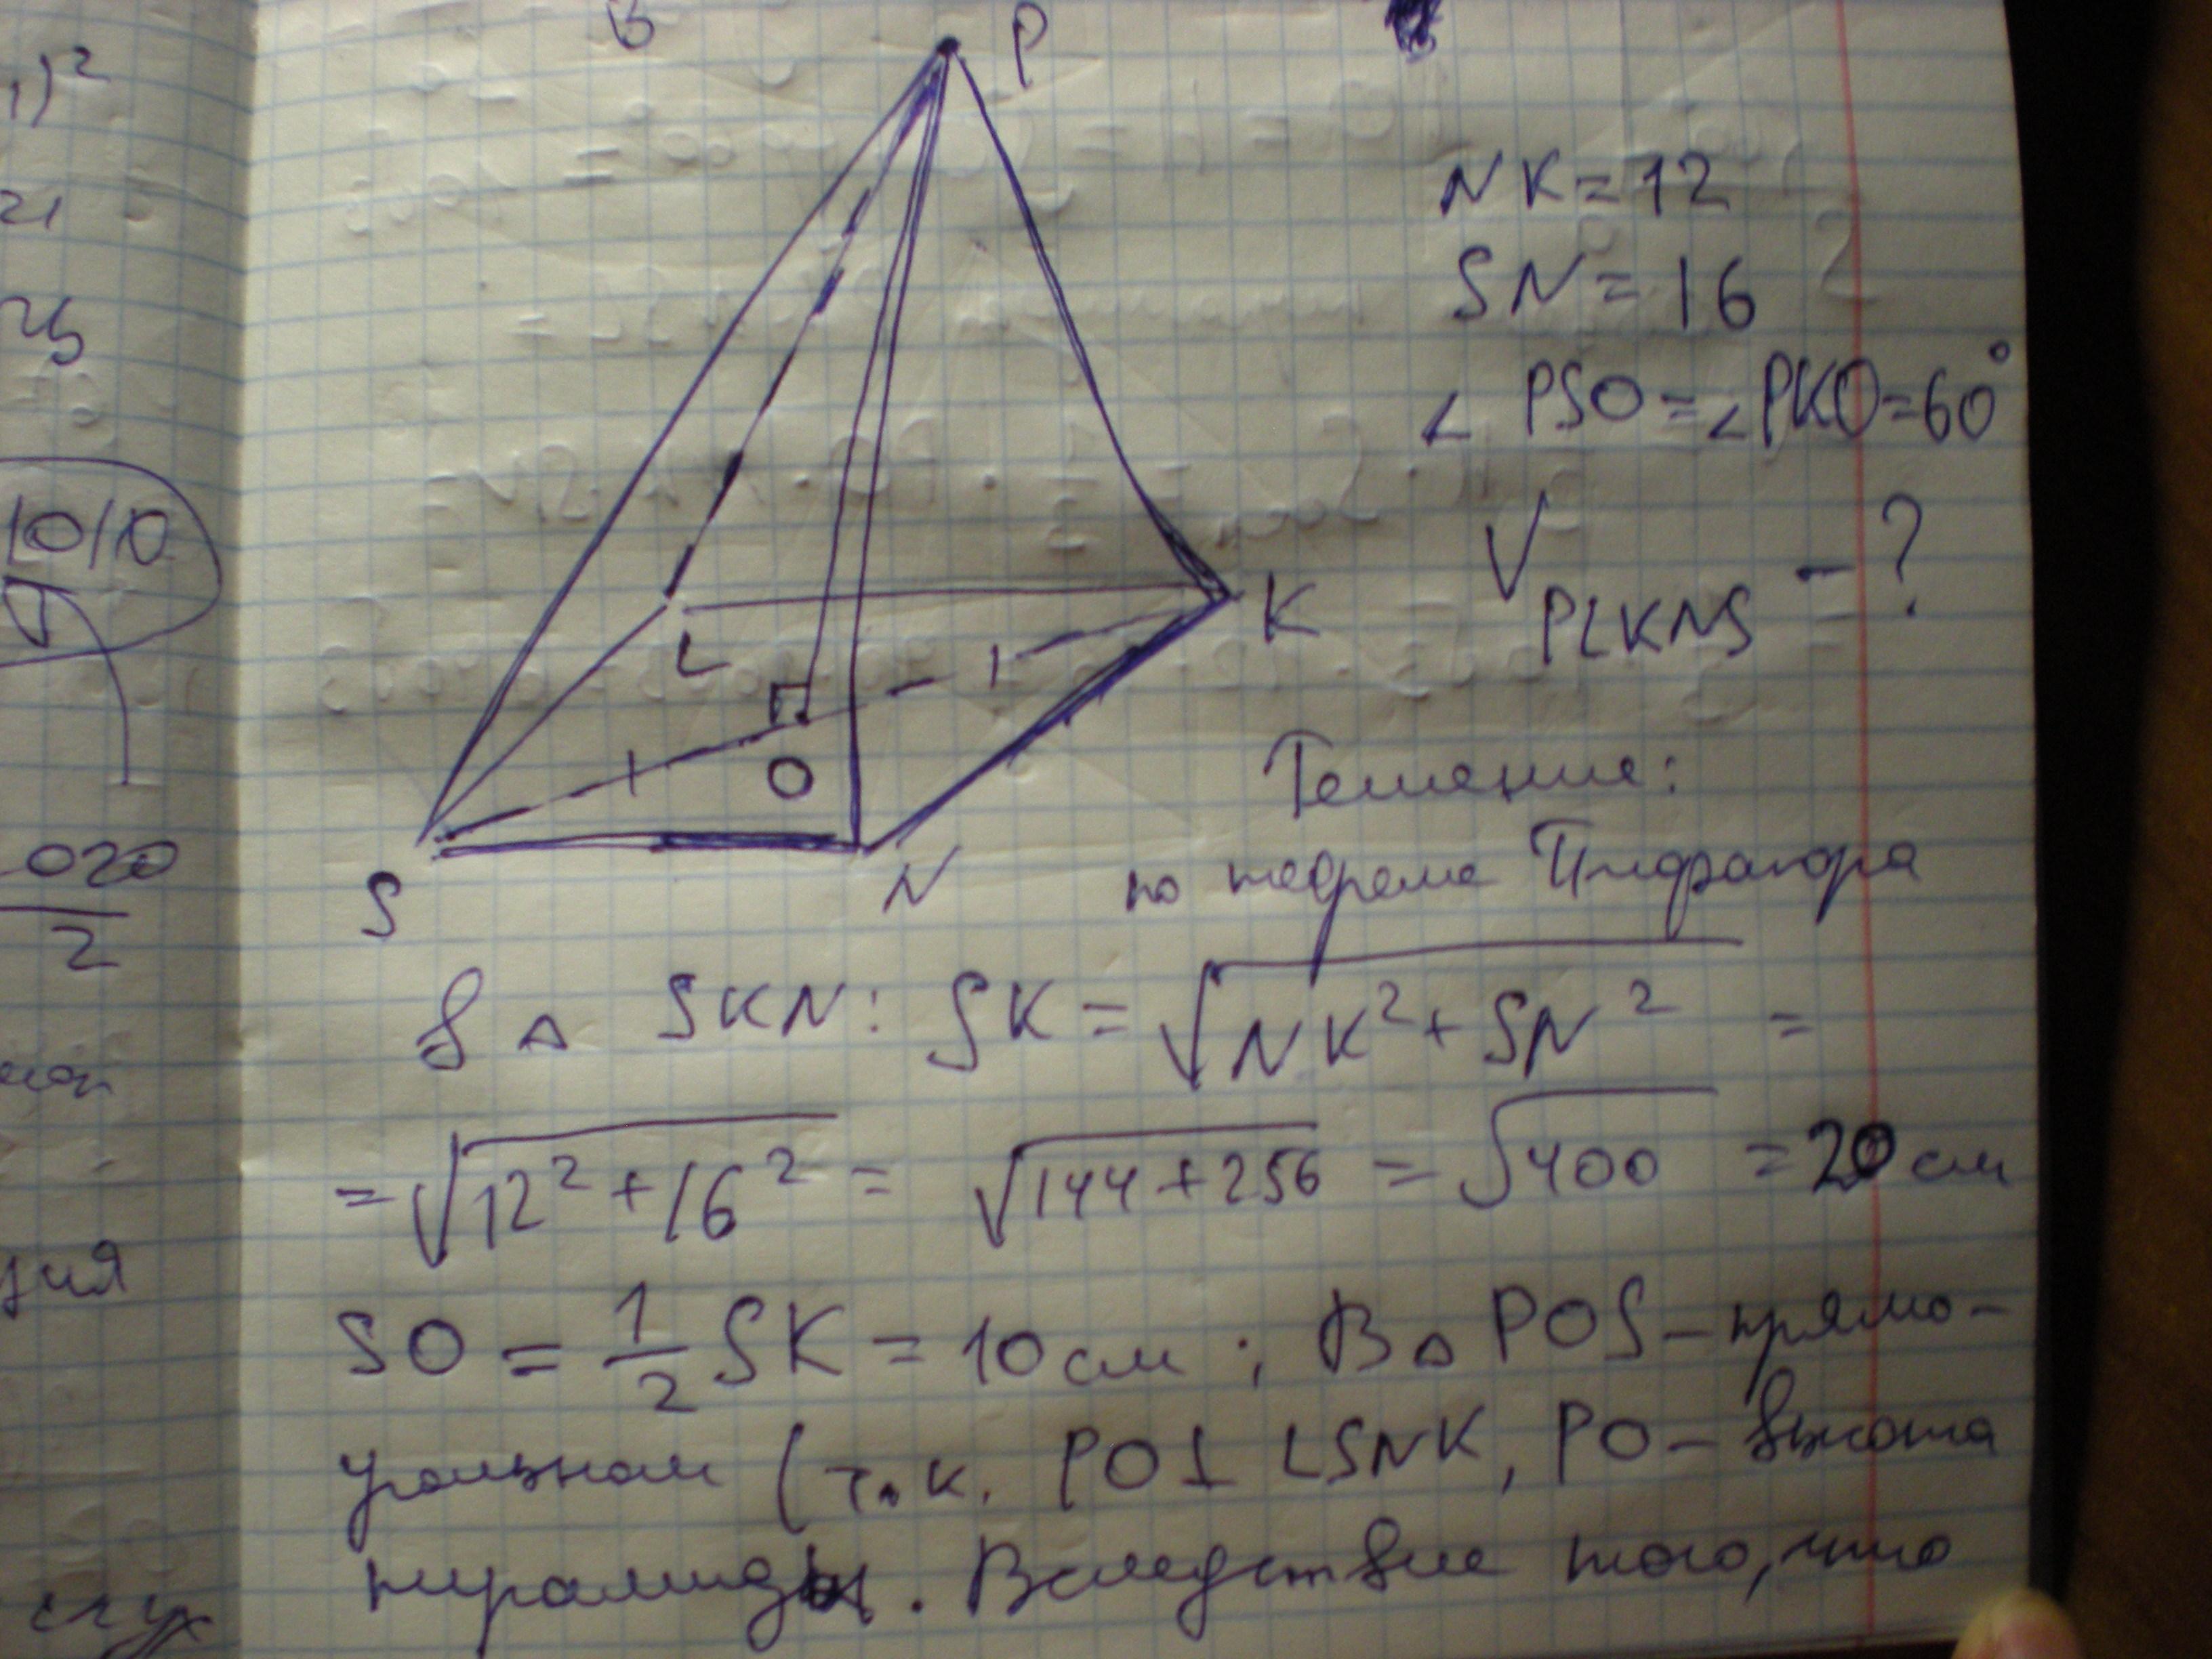 1)²
21
10/10
020
2
ция
B
P
NK=12
SN=16
∠ PSO=∠PKO=60°
V PLKNS - ?
L
K
O
S
N
Решение:
по теореме Пифагора
В △ SKN: SK = √NK²+SN² =
= √12²+16² = √144+256 = √400 = 20 см
SO = 1/2 SK = 10 см ; В △ POS – прямо-
угольном (т.к. PO⊥ LSNK, PO – высота
пирамиды. Вследствие того, что